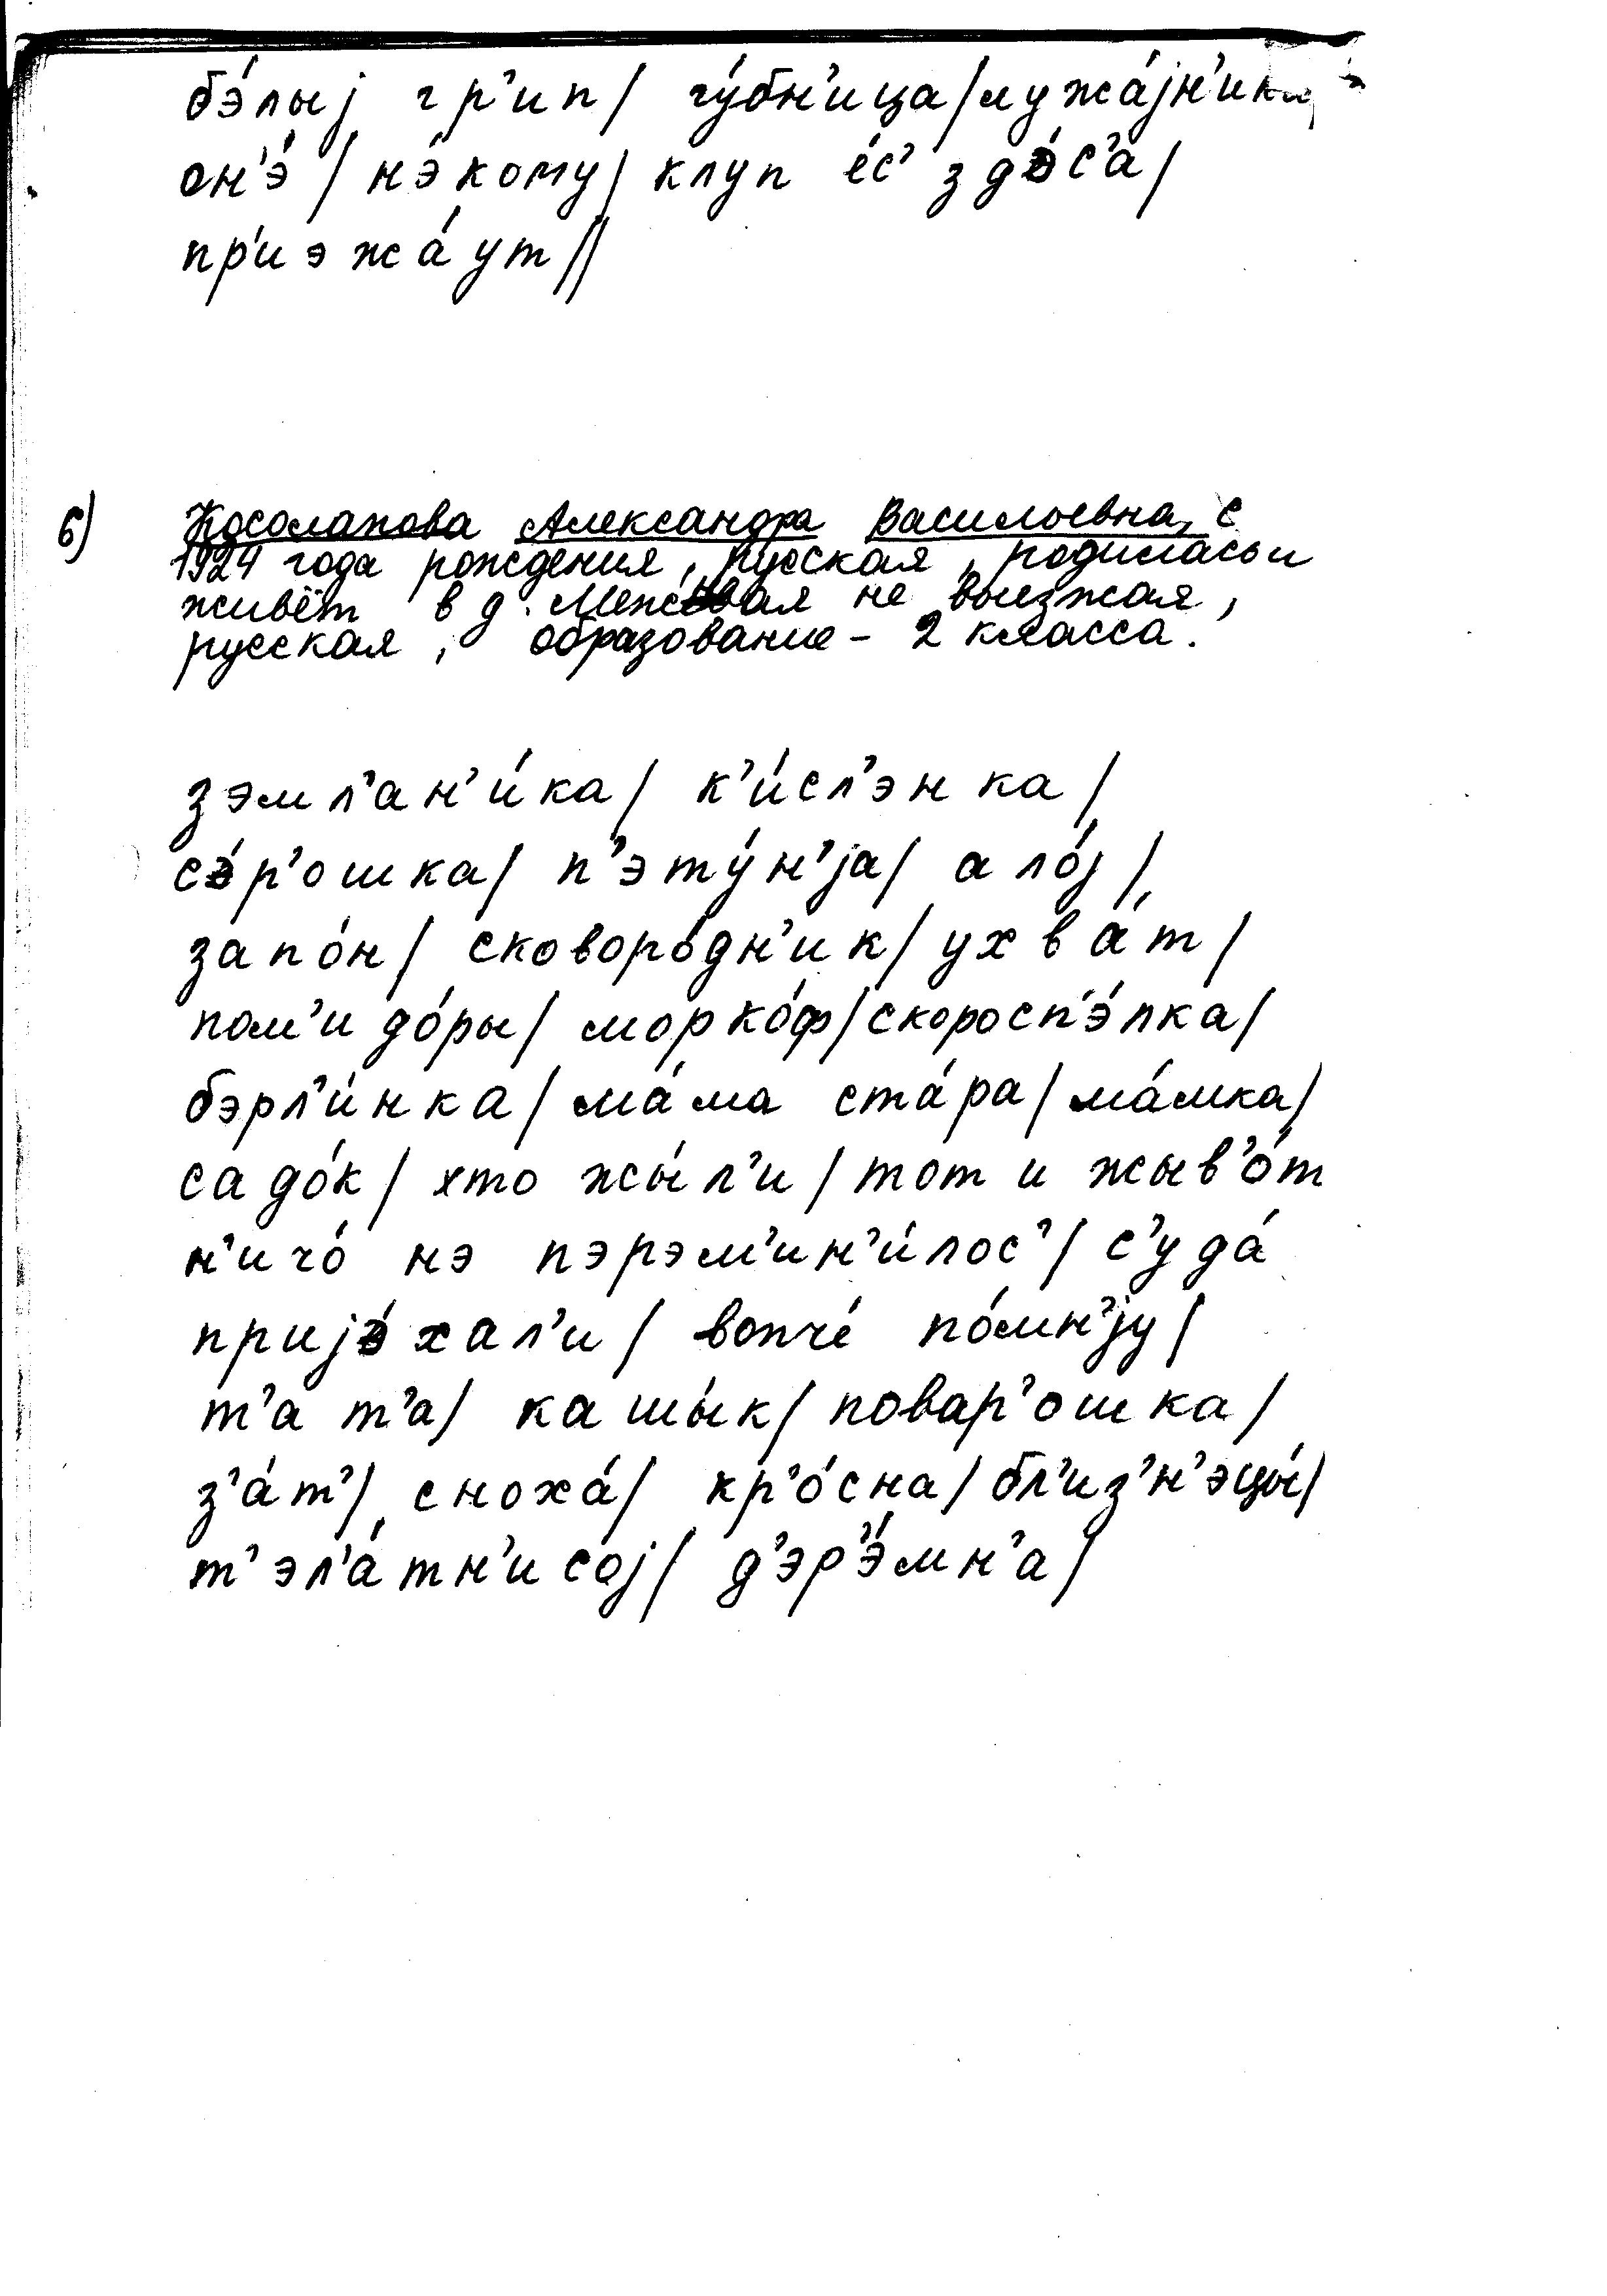 бэ́лыj гр’ип/ гу́бн’ица/лужа́jн’ики
он’э́/ нэ́кому/ клуп е́с’ здэ́с’а/
пр’иэжа́ут//
6) Косолапова Александра Васильевна, с
1924 года рождения, русская, родилась и
живёт в д. Межовая не выезжая,
русская, образование – 2 класса.
зэмл’ан’и́ка/ к’и́сл’энка/
сэ́р’ошка/ п’эту́н’jа/ ало́j/
запо́н/ сковоро́дн’ик/ ухва́т/
пом’идо́ры/ морко́ф/скоросп’э́лка/
бэрл’и́нка/ ма́ма ста́ра/ ма́мка/
садо́к/ хто жы́л’и/ тот и жыв’о́т
н’ичо́ нэ пэрэм’ин’и́лос’/ с’уда́
приjэ́хал’и/ вопче́ по́мн’jу/
т’ат’а/ кашы́к/ повар’ошка/
з’а́т’/ сноха́/ кр’о́сна/ бл’из’н’эцы́/
т’эл’а́тн’исоj/ д’эр’э́мн’а/